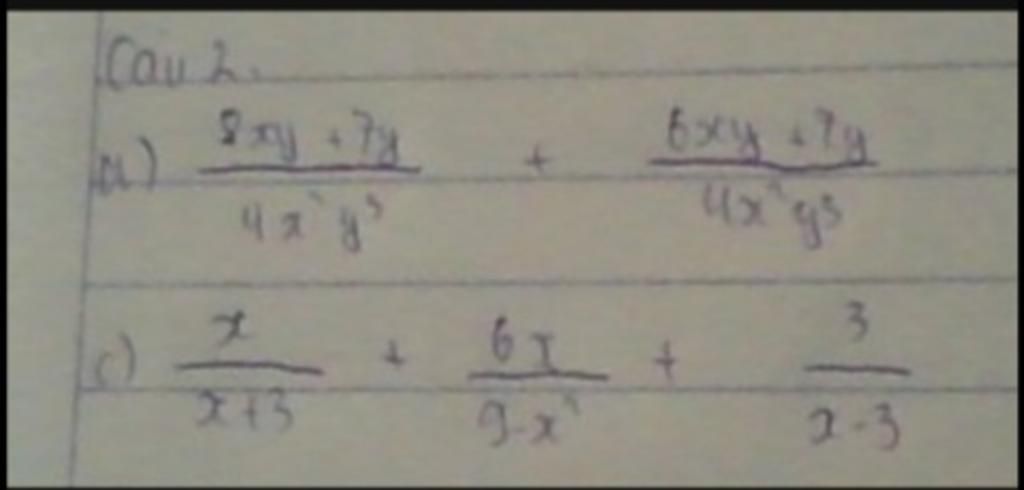 Câu 2.
a) (8xy + 7y)/(4x²y³) + (6xy + 7y)/(4x²y³)
c) x/(x+3) + 6x/(9-x²) + 3/(x-3)